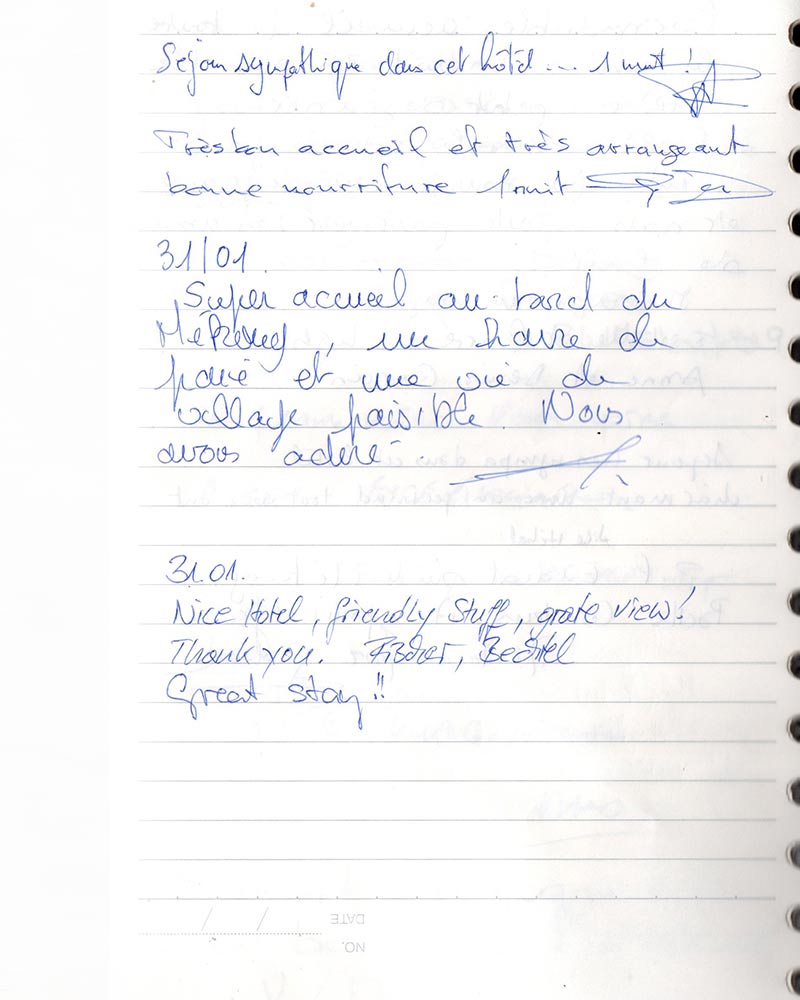 Séjour sympathique dans cet hôtel... 1 nuit !
Très bon accueil et très arrangeant
bonne nourriture 1 nuit
31/01
Super accueil au bord du
Mékong, un havre de
paix et une vie de
village paisible. Nous
avons adoré.
31.01.
Nice Hotel, friendly Stuff, grate view!
Thank you. Fischer, Bechtel
Great stay!!
DATE
NO.